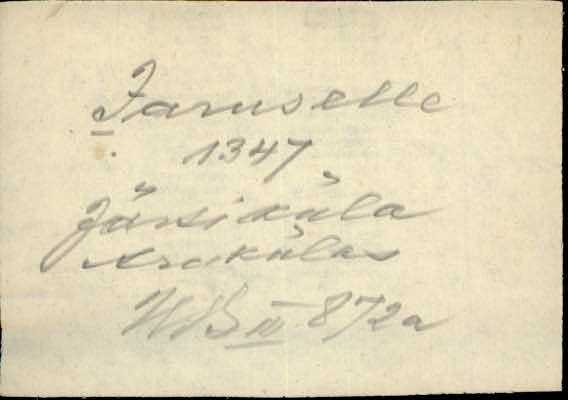 Jaruselle
1347
Järsiküla
Arukülas
UB IV 872a